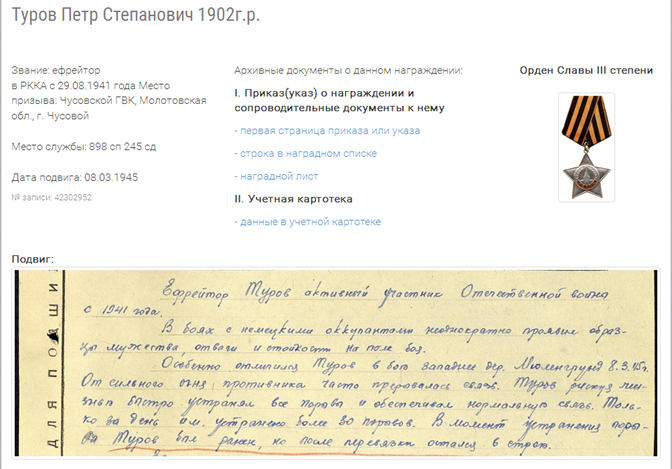 Туров Петр Степанович 1902г.р.
Звание: ефрейтор
в РККА с 29.08.1941 года Место
призыва: Чусовской ГВК, Молотовская
обл., г. Чусовой
Место службы: 898 сп 245 сд
Дата подвига: 08.03.1945
№ записи: 42302952
Архивные документы о данном награждении:
I. Приказ(указ) о награждении и
сопроводительные документы к нему
- первая страница приказа или указа
- строка в наградном списке
- наградной лист
II. Учетная картотека
- данные в учетной картотеке
Орден Славы III степени
Подвиг:
ДЛЯ ПОДШИ
Ефрейтор Туров активный участник Отечественной война
с 1941 года.
В боях с немецкими оккупантами неоднократно проявил образ-
цы мужества отваги и стойкости на поле боя.
Особенно отличился Туров в бою западнее дер. Мюленгрунд 8.3.45г.
От сильного огня противника часто прерывалась связь. Туров рискуя жи-
знью быстро устранял все порывы и обеспечивал нормальную связь. Толь-
ко за день им устранено более 30 порывов. В момент устранения поры-
ва Туров был ранен, но после перевязки остался в строю.